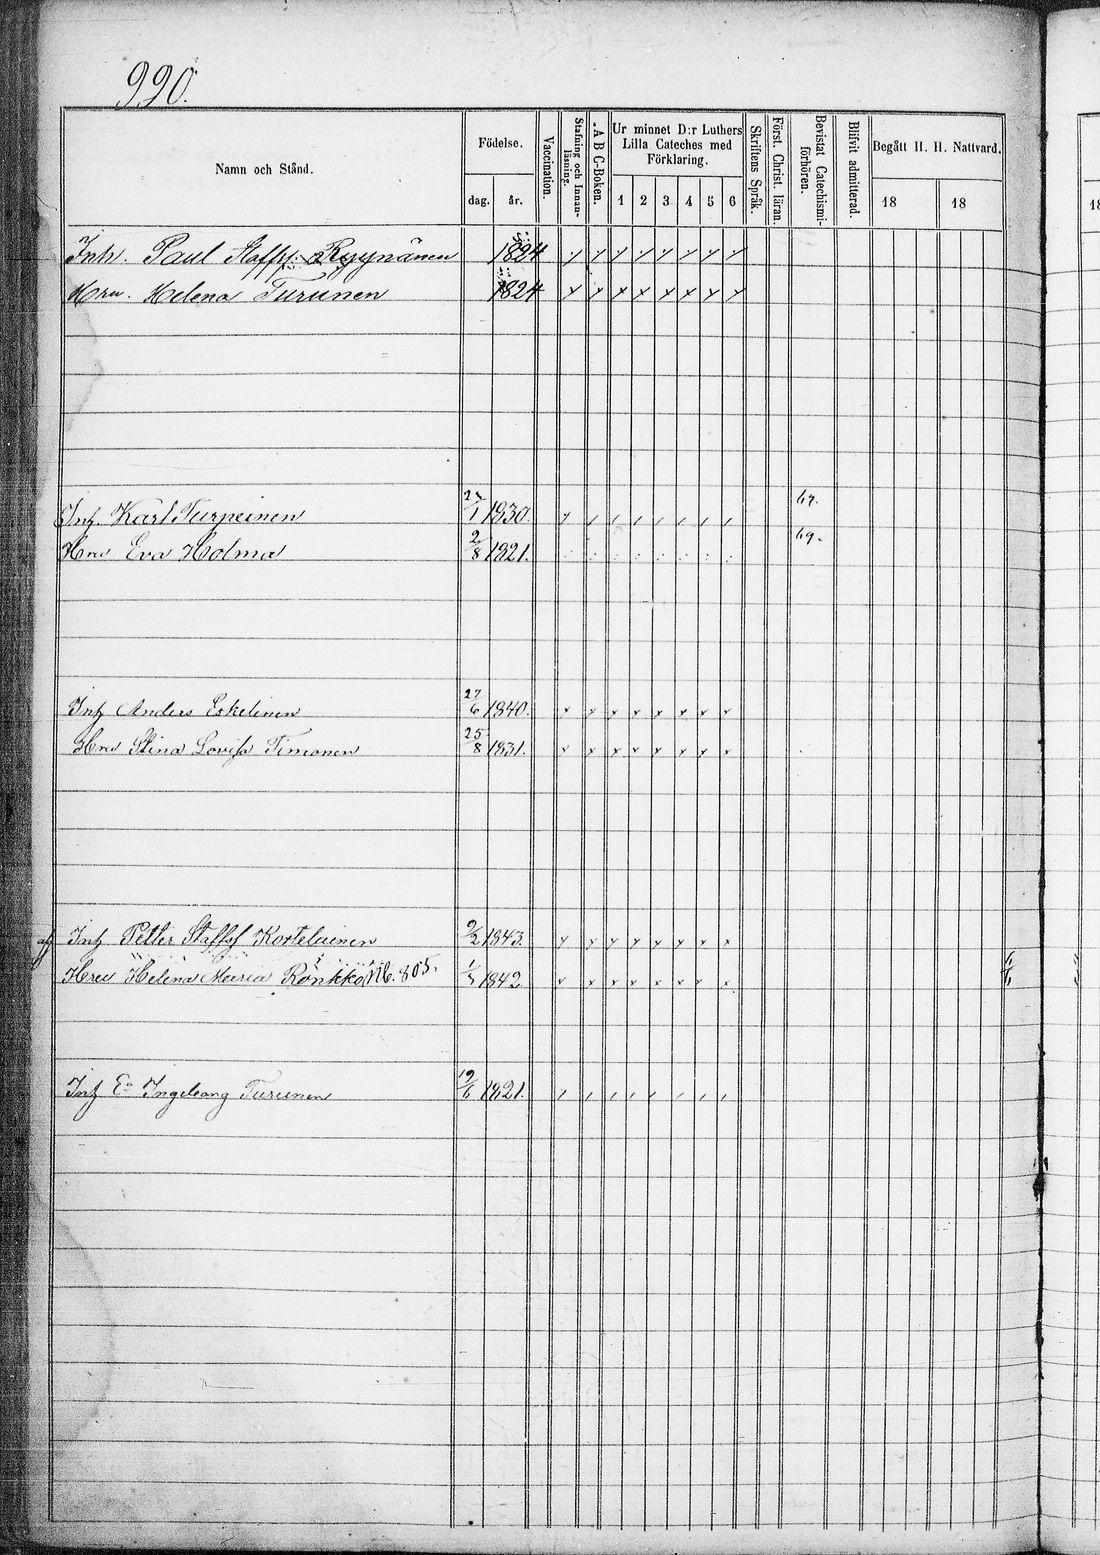 990.
Namn och Stånd.
Födelse.
dag. år.
Vaccination.
Stafning och Innanläsning.
A B C-Boken.
Ur minnet D:r Luthers Lilla Cateches med Förklaring.
1 2 3 4 5 6
Skriftens Språk.
Först. Christ. läran.
Bevistat Catechismi-förhören.
Blifvit admitterad.
Begått H. H. Nattvard.
18 18
Inh. Paul Staffs: Ryynänen 1824
Hru. Helena Turunen 1824
Inh. Karl Turpeinen 1830. 67.
Hru Eva Holma 2/8 1821. 69.
Inh Anders Eskelinen 27/6 1840.
Hru Stina Lovisa Timonen 25/8 1831.
Inh Petter Staffsf Kortelainen 9/2 1843.
Hru Helena Maria Rönkkö, No. 805. 1842.
Inh Ea Ingeborg Turunen 19/6 1821.